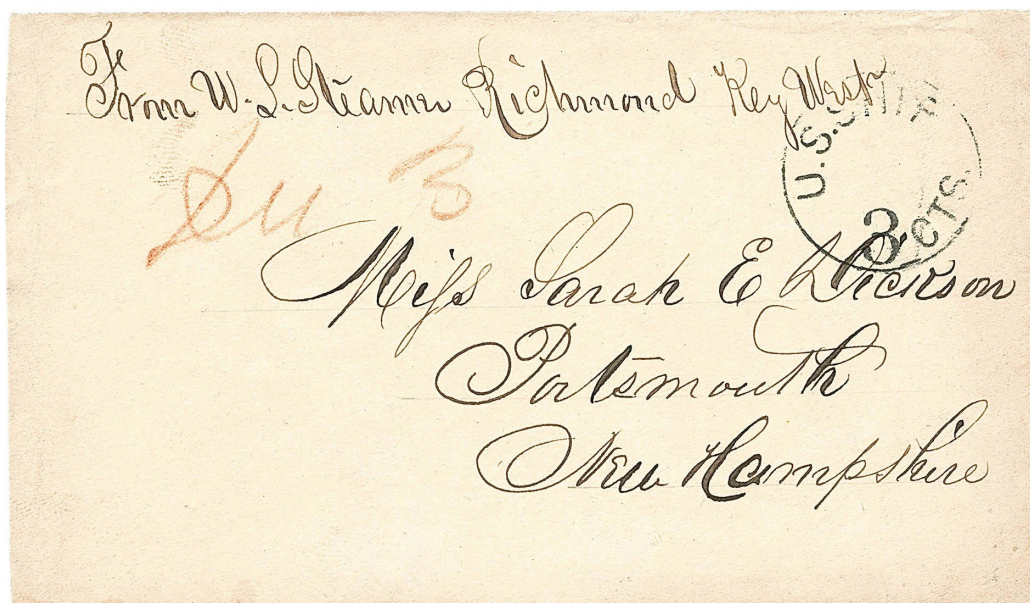 From U. S. Steamer Richmond Key West
U.S. SHIP
3 CTS.
Due 3
Miss Sarah E Dickson
Portsmouth
New Hampshire